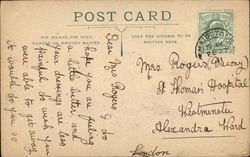 POST CARD
FOR INLAND USE ONLY
THIS SPACE MAY BE USED FOR
PRINTED OR WRITTEN MATTER.
ONLY THE ADDRESS TO BE
WRITTEN HERE.
Dear Mrs Rogers I do
hope you are feeling
a little better and
your dressings are less
painful do wish you
were able to get away
it would do you so
Mrs. Rogers
St Thomas's Hospital
Westminster
Alexandra Ward
London